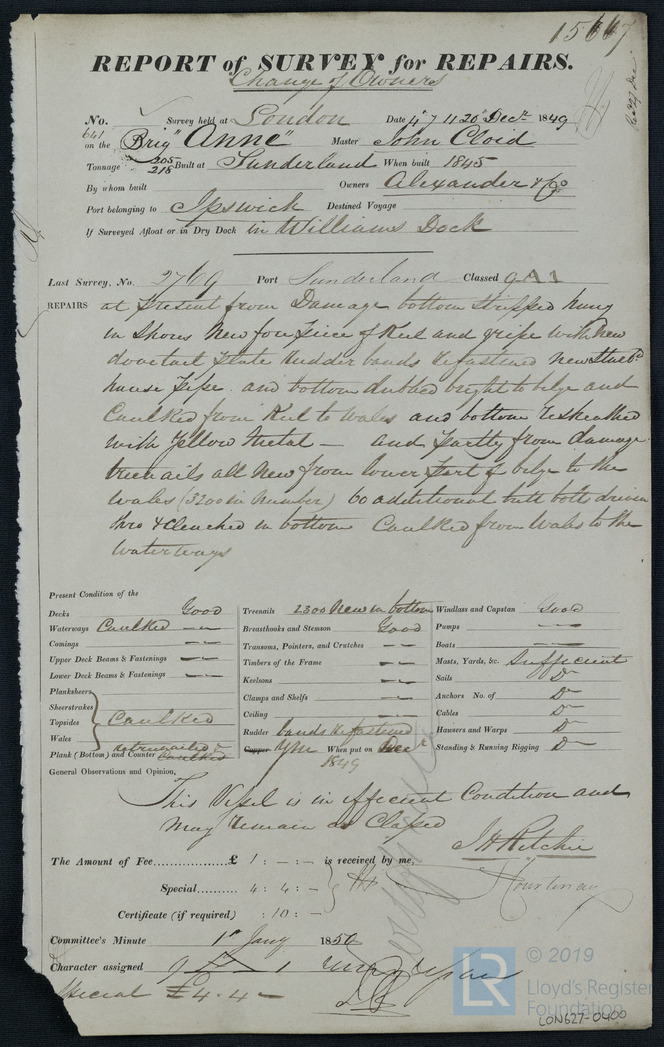 15667
REPORT of SURVEY for REPAIRS.
Change of Owners
No. Survey held at London Date 4" 7 11 20" Decr 1849
641
on the Brig "Anne" Master John Cloid
Tonnage 205 218 Built at Sunderland When built 1845
By whom built Owners Alexander & Co
Port belonging to Ipswich Destined Voyage
If Surveyed Afloat or in Dry Dock in Williams Dock
Last Survey, No. 2769 Port Sunderland Classed 9 A 1
REPAIRS at present from Damage bottom stripped hung
in Shores New fore piece of Keel and gripe with new
dovetail plate Rudder bands refastened new Starbd
hause pipe and bottom dubbed bright to bilge and
Caulked from Keel to Wales and bottom resheathed
with Yellow Metal — and partly from damage
treenails all New from lower part of bilge to the
Wales (3200 in Number) 60 additional butt bolts driven
thro & Clenched in bottom Caulked from Wales to the
Waterways
Present Condition of the
Decks Good
Waterways Caulked
Comings
Upper Deck Beams & Fastenings
Lower Deck Beams & Fastenings
Planksheers
Sheerstrakes
Topsides Caulked
Wales
Plank (Bottom) and Counter retreenailed & Caulked
Treenails 2300 New in bottom
Breasthooks and Stemson Good
Transoms, Pointers, and Crutches
Timbers of the Frame
Keelsons
Clamps and Shelfs
Ceiling
Rudder bands refastened
Copper YM When put on Decr
1849
Windlass and Capstan Good
Pumps
Boats
Masts, Yards, &c. Sufficient
Sails Do
Anchors No. of Do
Cables Do
Hausers and Warps Do
Standing & Running Rigging Do
General Observations and Opinion,
This Vessel is in efficient Condition and
May remain as Classed
J H Ritchie
Courtenay
The Amount of Fee £ 1 : - : - is received by me,
Special 4 : 4 : -
Certificate (if required) : 10 : -
Committee's Minute 1st Jany 1850
Character assigned
Special £4.4 -
© 2019
LR
Lloyd's Register
Foundation
LON627-0400